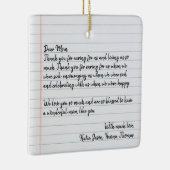 Dear Mom,
Thank you for caring for us and loving us so
much. Thank you for caring for us when we
were sick, encouraging us when we were sad
and celebrating with us when we were happy.
We love you so much and are so blessed to have
a wonderful mom, like you.
Hugs much love,